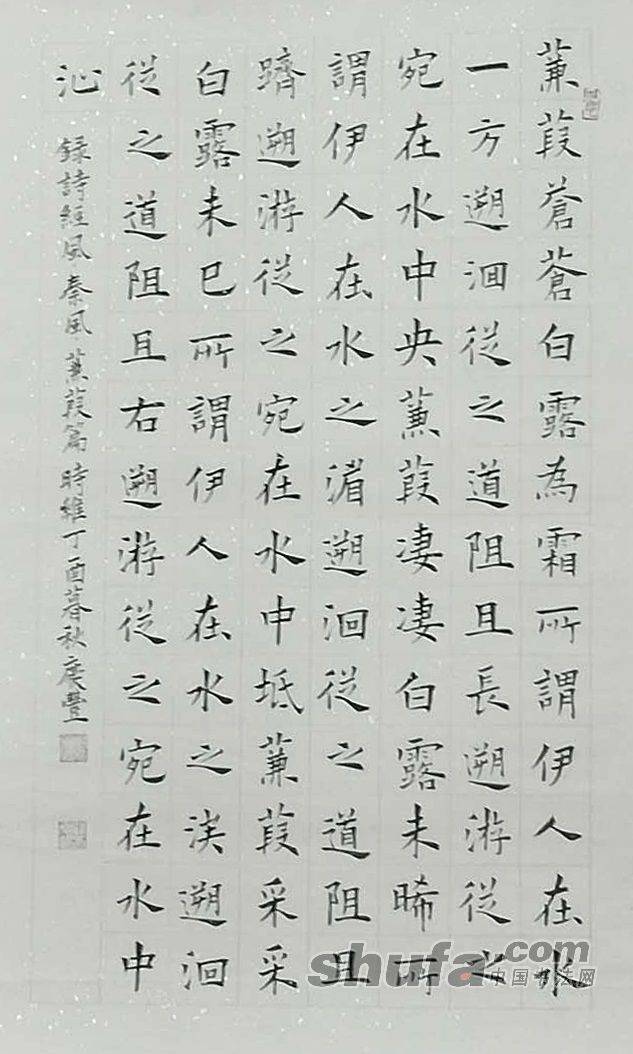 蒹葭蒼蒼白露為霜所謂伊人在水
一方遡洄從之道阻且長遡游從之
宛在水中央蒹葭凄凄白露未晞所
謂伊人在水之湄遡洄從之道阻且
躋遡游從之宛在水中坻蒹葭采采
白露未已所謂伊人在水之涘遡洄
從之道阻且右遡游從之宛在水中
沚
録詩經風秦風蒹葭篇時維丁酉暮秋廣豐
shufa.com
中国书法网